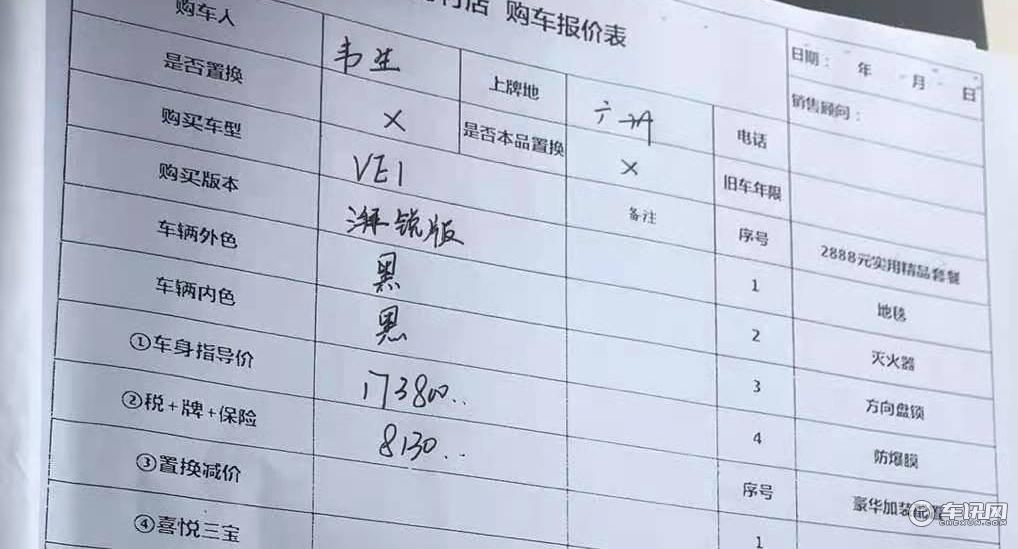 购车报价表
购车人 韦生 上牌地 日期： 年 月 日
是否置换 × 是否本品置换 × 电话 销售顾问：
购买车型 VE1 备注 旧车年限
购买版本 湃锐版 序号 2888元实用精品套餐
车辆外色 黑 1 地毯
车辆内色 黑 2 灭火器
①车身指导价 173800.. 3 方向盘锁
②税+牌+保险 8130.. 4 防爆膜
③置换减价 序号 豪华加装
④喜悦三宝 1
车讯网
CHEXUN.COM